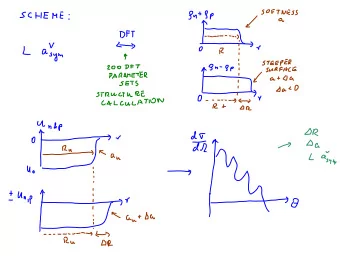 SCHEME:
L a^v_sym
DFT
200 DFT
PARAMETER
SETS
STRUCTURE
CALCULATION
ρn+ρp
SOFTNESS
a
0
R
r
ρn-ρp
STEEPER
SURFACE
a+Δa
Δa<0
0
r
R+ ΔR
0
r
Ru
au
U0
± Un,p
r
au+Δu
Ru
ΔR
dσ
dΩ
θ
ΔR
Δa
L a^v_sym